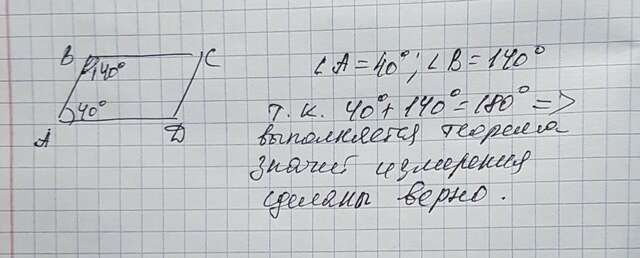 B
C
140°
40°
A
D
∠A=40°; ∠B=140°
т.к. 40°+140°=180° =>
выполняется теорема
значит измерения
сделаны верно.